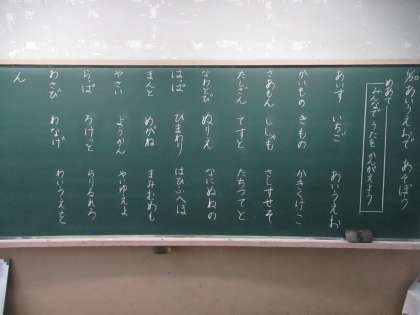 6/10 あいうえおで あそぼう
めあて
みんなで うたを かんがえよう
あいす いちご あいうえお
かいもの きもの かきくけこ
さあもん ししゃも さしすせそ
たしざん てすと たちつてと
なわとび ぬりえ なにぬねの
はっぱ ひまわり はひふへほ
まんと めがね まみむめも
やさい ようかん やいゆえよ
らっぱ ろけっと らりるれろ
わさび わなげ わいうえを
ん